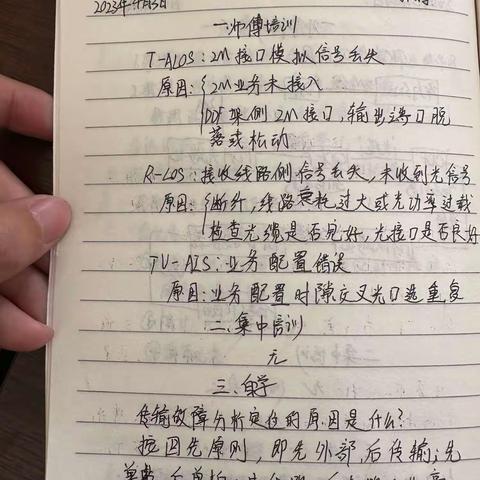 2023年4月3日
一、师傅培训
T-ALOS：2M接口模拟信号丢失
原因：2M业务未接入
DDF架侧2M接口，输出端口脱
落或松动
R-LOS：接收线路侧信号丢失，未收到光信号
原因：断纤，线路衰耗过大或光功率过载
检查光缆是否完好，光接口是否良好
TU-AIS：业务配置错误
原因：业务配置时隙交叉光口选重复
二、集中培训
无
三、自学
传输故障分析定位的原因是什么？
按四先原则，即先外部，后传输；先